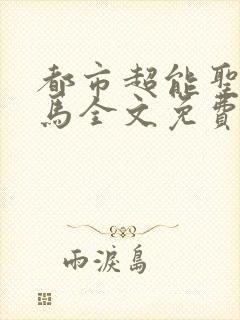 都市超能聖
馬全文免費
雨淚島